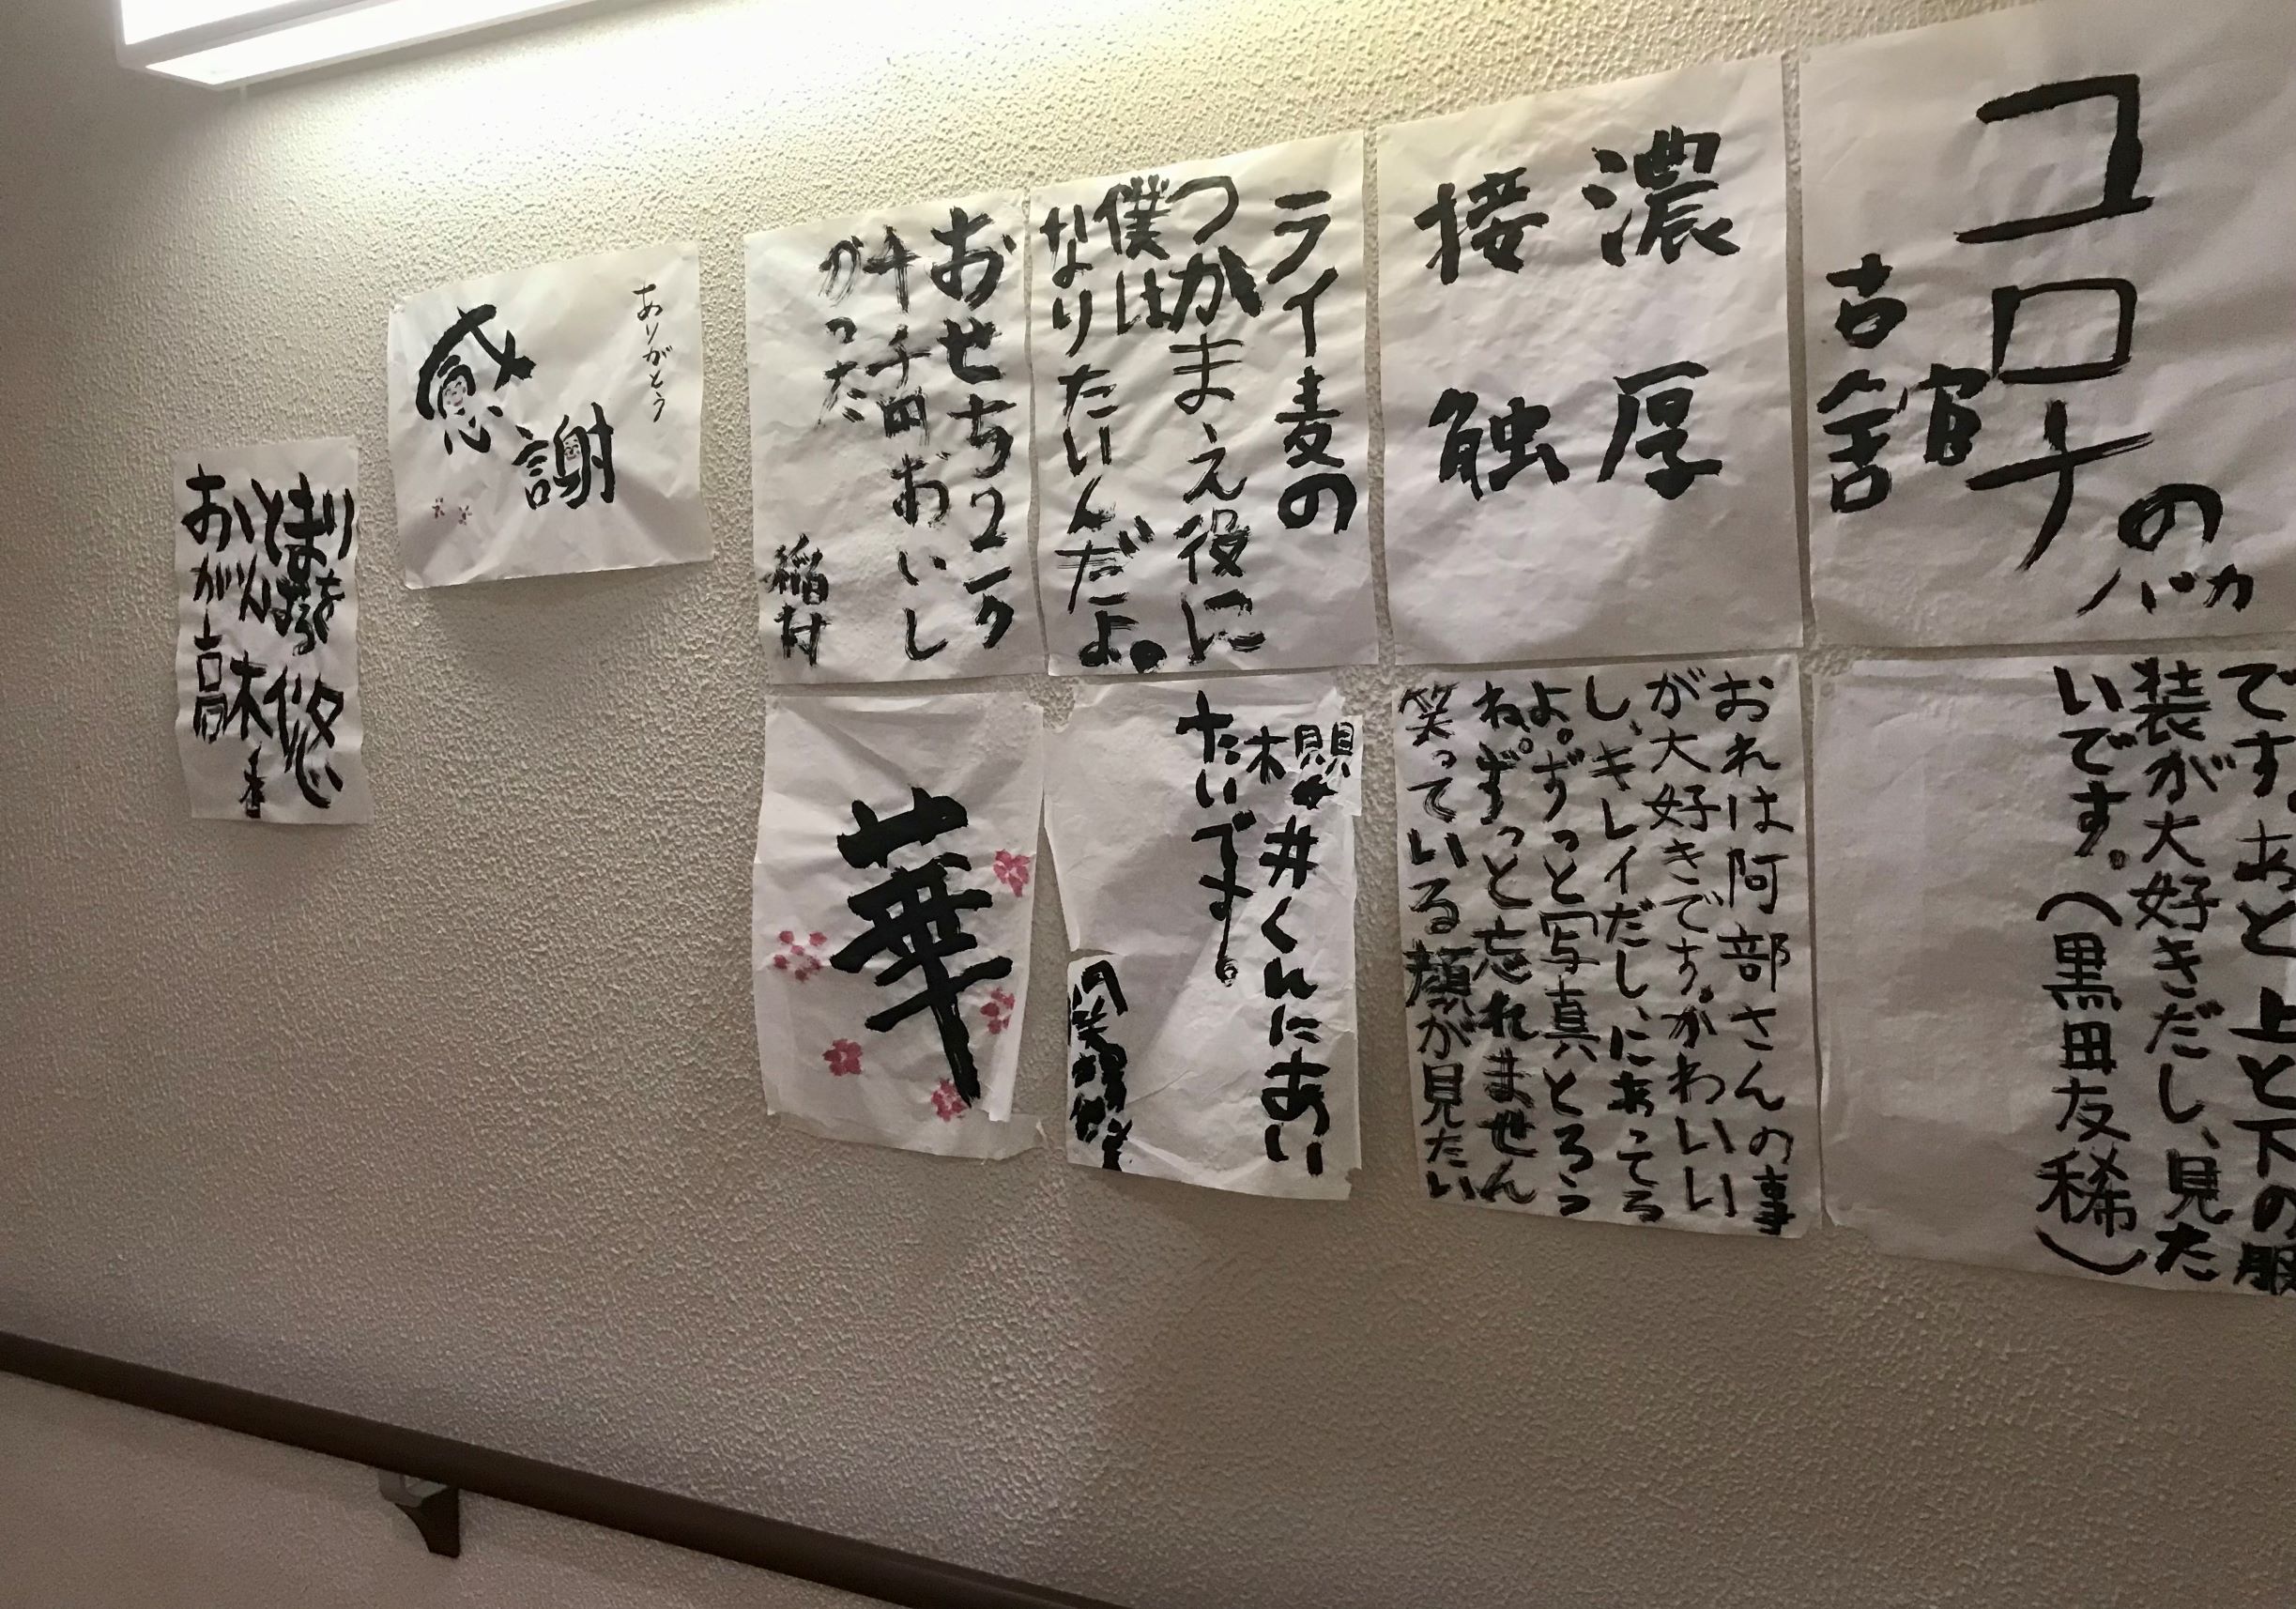 コロナの
バカ
古舘
濃厚
接触
ライ麦の
つかまえ役に
僕は
なりたいんだよ。
おせち2万
千円おいし
かった
稲村
ありがとう
感謝
です。あと上と下の服
装が大好きだし、見た
いです。(黒田友稀)
おれは阿部さんの事
が大好きです。かわいい
し、キレイだし、にあってる
よ。ずっと写真とろう
ね。ずっと忘れません
笑っている顔が見たい
櫻井くんにあい
たいです。
華
高木